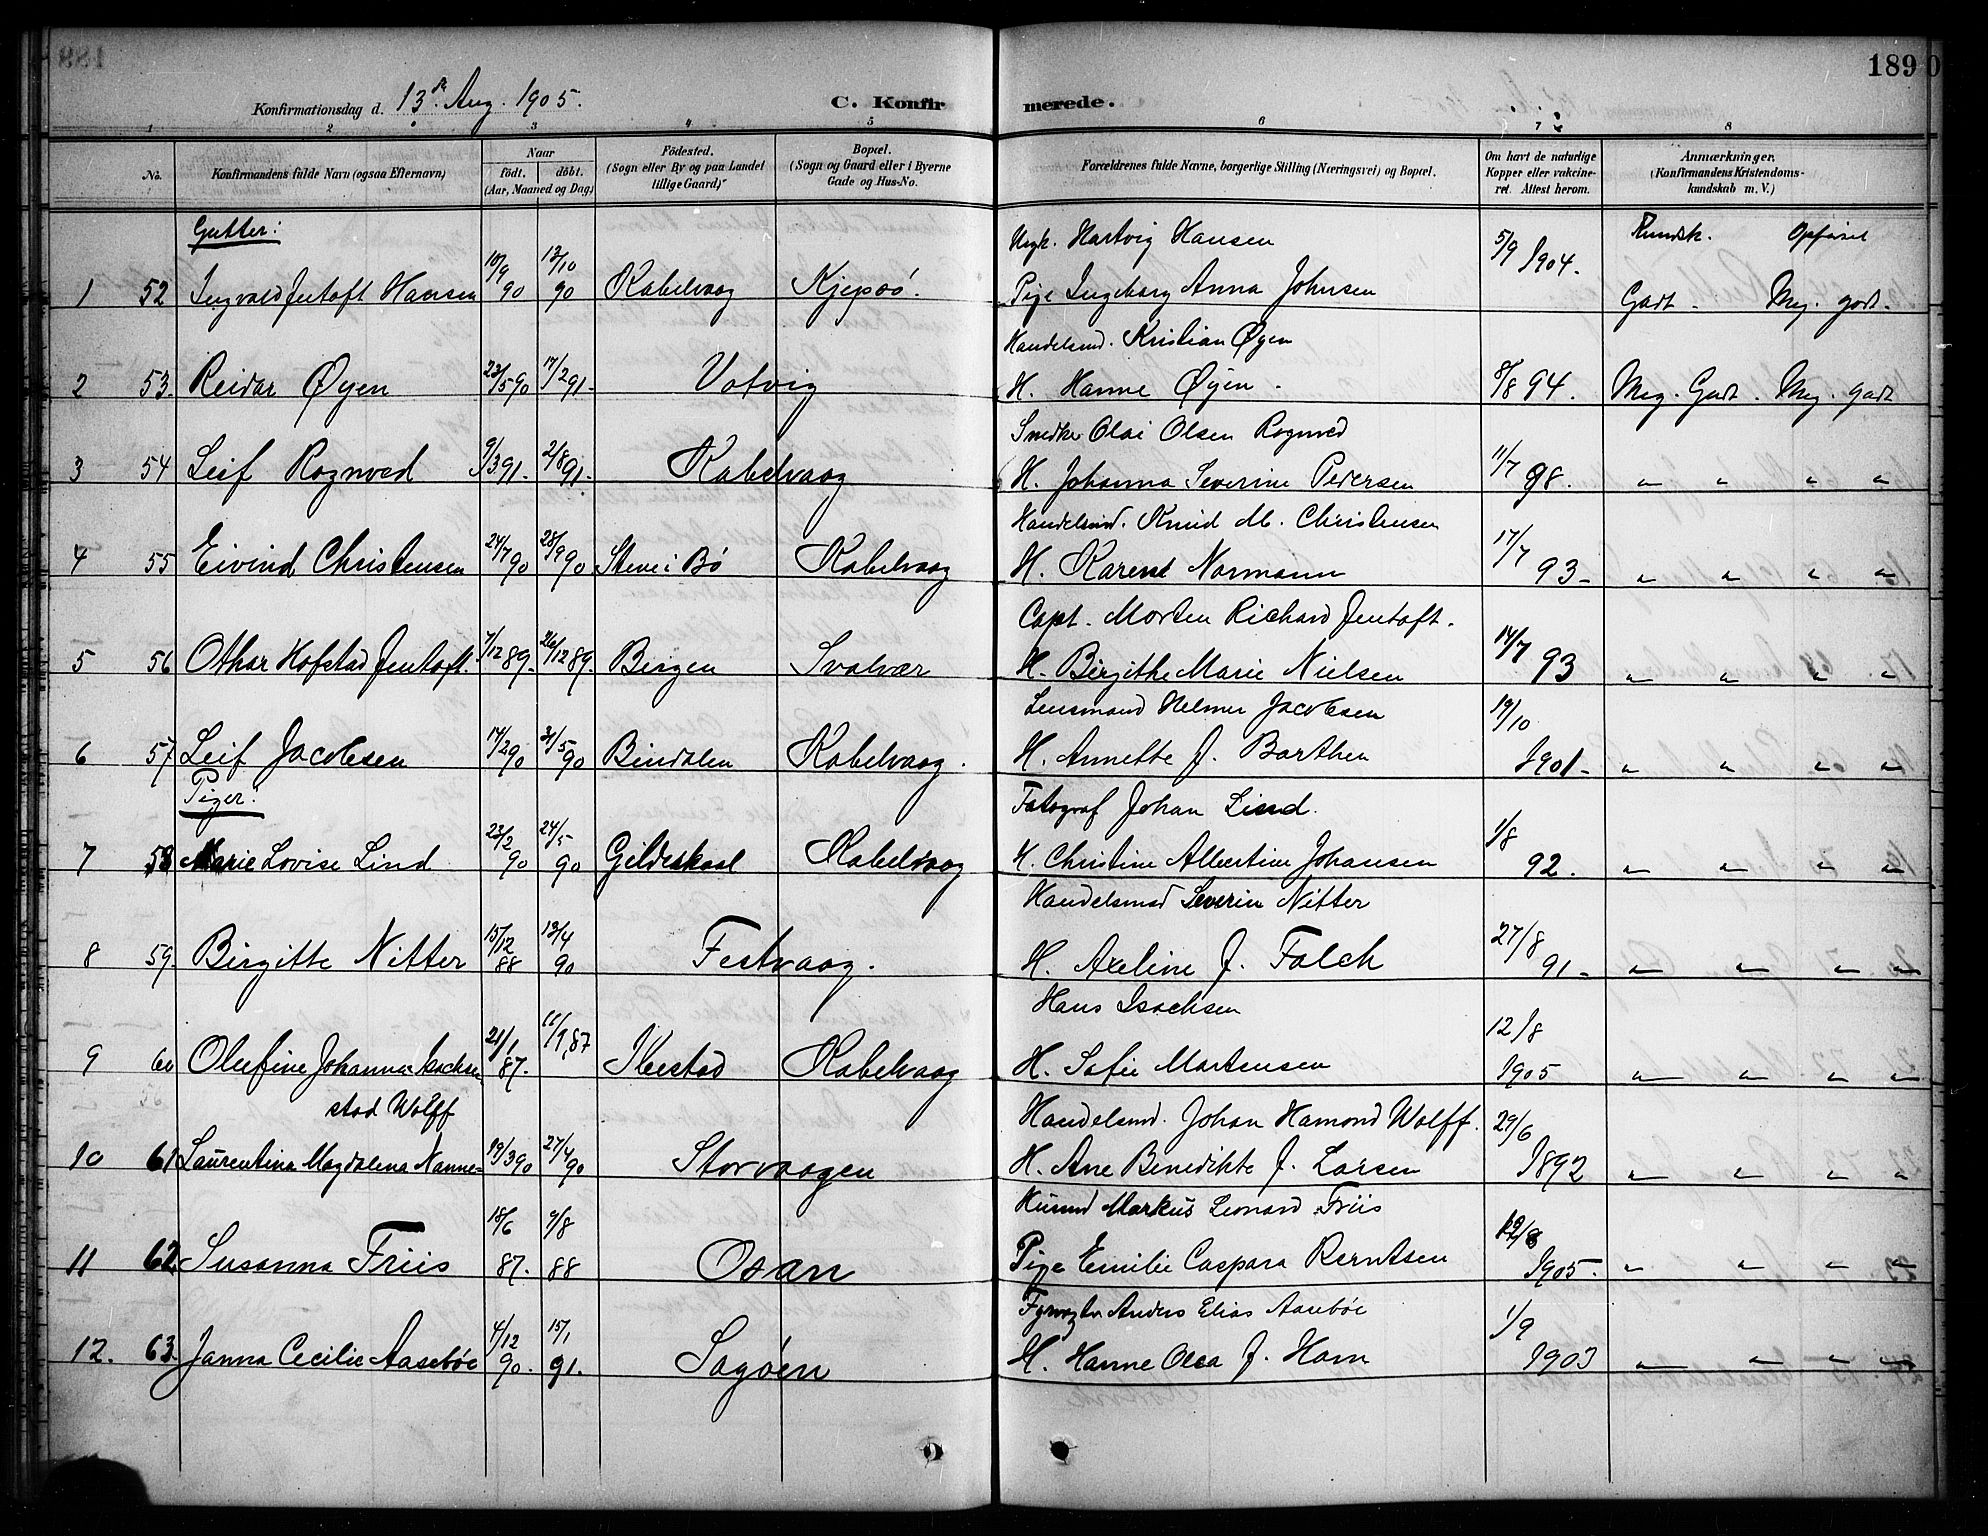 189
Konfirmationsdag d. 13de Aug. 1905.
C. Konfirmerede.
1 2 3 4 5 6 7 8
No.
Konfirmandens fulde Navn (ogsaa Efternavn)
Naar
födt. döbt.
(Aar, Maaned og Dag)
Födested.
(Sogn eller By og paa Landet
tillige Gaard)
Bopæl.
(Sogn og Gaard eller i Byerne
Gade og Hus-No.
Forældrenes fulde Navne, borgerlige Stilling (Næringsvei) og Bopæl.
Om havt de naturlige
Kopper eller vakcine-
ret. Attest herom.
Anmærkninger.
(Konfirmandens Kristendoms-
kundskab m. V.)
Gutter:
Ungk. Hartvig Hansen 5/9 1904. Kundsk. Opførsel
1 52 Ingvald Jentoft Hansen 10/9 90 12/10 90 Kabelvaag Kjeøsø. Pige Ingeborg Anna Johnsen Godt - Meg. godt.
Handelsmd. Kristian Øyen
2 53. Reidar Øyen 23/5 90 17/2 91. Votvig H. Hanne Øyen. 8/8 94. Meg. Godt. Meg. godt
Snedker Olai Olsen Rognved
3 54 Leif Rognved 9/3 91. 2/8 91. Kabelvaag H. Johanna Severine Pedersen 11/7 98. " " " "
Handelsmd. Knud M. Christensen
4 55 Eivind Christensen 24/7 90 28/9 90 Stene i Bø Kabelvaag H. Karen Normann 17/7 93- " " " "
Capt. Morten Richard Jentoft.
5 56 Othar Hofstad Jentoft. 7/12 89. 26/12 89. Bergen Svolvær H. Birgithe Marie Nielsen 14/7 93 " " " "
Lensmand Helmer Jacobsen
6 57 Leif Jacobsen 17/2 90 31/5 90 Bindalen Kabelvaag. H. Annette J. Barthen 19/10 1901- " " " "
Piger:
Fotograf Johan Lind.
7 58 Marie Lovise Lind 23/2 90 24/5 90 Gildeskaal Kabelvaag H. Christine Albertine Johansen 1/8 92. " " " "
Handelsmd Severin Nitter
8 59. Birgitte Nitter 15/12 88 13/4 90 Festvaag. H. Axeline J. Falch 27/8 91- " " " "
Hans Isachsen
9 60 Olufine Johanna Isachsen 21/1 87. 11/9 87 Ibestad Kabelvaag H. Sofie Martensen 12/8 1905 " " " "
stad Wolff Handelsmd. Johan Hamond Wolff.
10 61 Laurentina Magdalena Nanne= 19/3 90 27/4 90 Storvaagen H. Ane Benedikte J. Larsen 29/6 1892 " " " "
Husmd Markus Leonard Friis
11 62 Susanna Friis 18/6 87. 9/8 88 Osan Pige Emilie Caspara Berntsen 12/8 1905. " " " "
Fyrvogter Anders Elias Aasebøe
12. 63. Janna Cecilie Aasebøe 4/12 90. 15/1 91. Sagøen H. Hanne Olea J. Horn 1/9 1903 " " " "